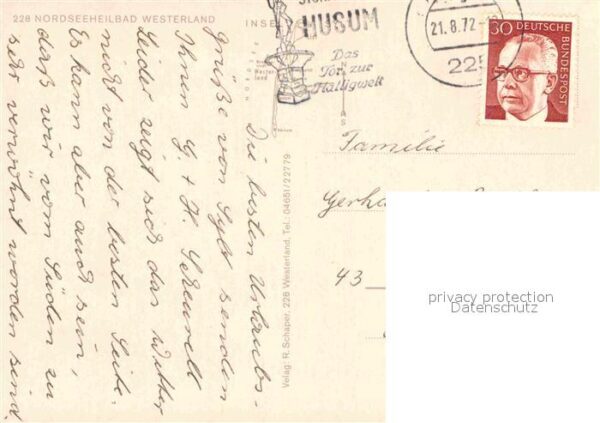 228 NORDSEEHEILBAD WESTERLAND
HUSUM
Das
Tor zur
Halligwelt
21.8.72
225
30
DEUTSCHE
BUNDESPOST
Die besten Urlaubs-
grüße von Sylt senden
Ihnen G. + H.
Leider zeigt sich das Wetter
nicht von der besten Seite.
Es kann aber auch sein,
daß wir vom Süden zu
sehr verwöhnt worden sind.
Verlag: R. Schaper, 228 Westerland, Tel.: 04651/22779
Familie
43
privacy protection
Datenschutz